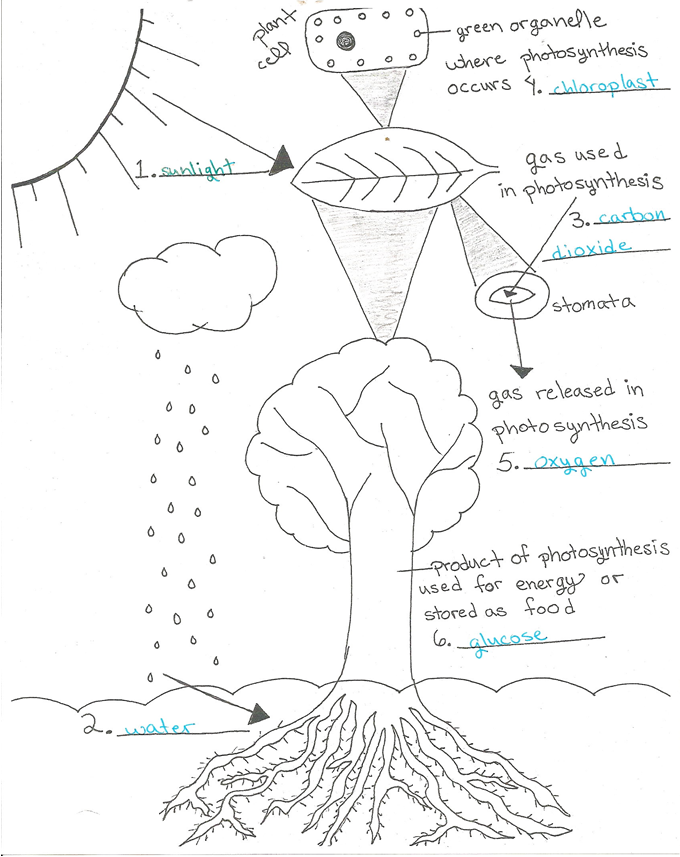 plant
cell
green organelle
where photosynthesis
occurs 4. chloroplast
1. sunlight
gas used
in photosynthesis
3. carbon
dioxide
stomata
gas released in
photosynthesis
5. oxygen
product of photosynthesis
used for energy or
stored as food
6. glucose
2. water